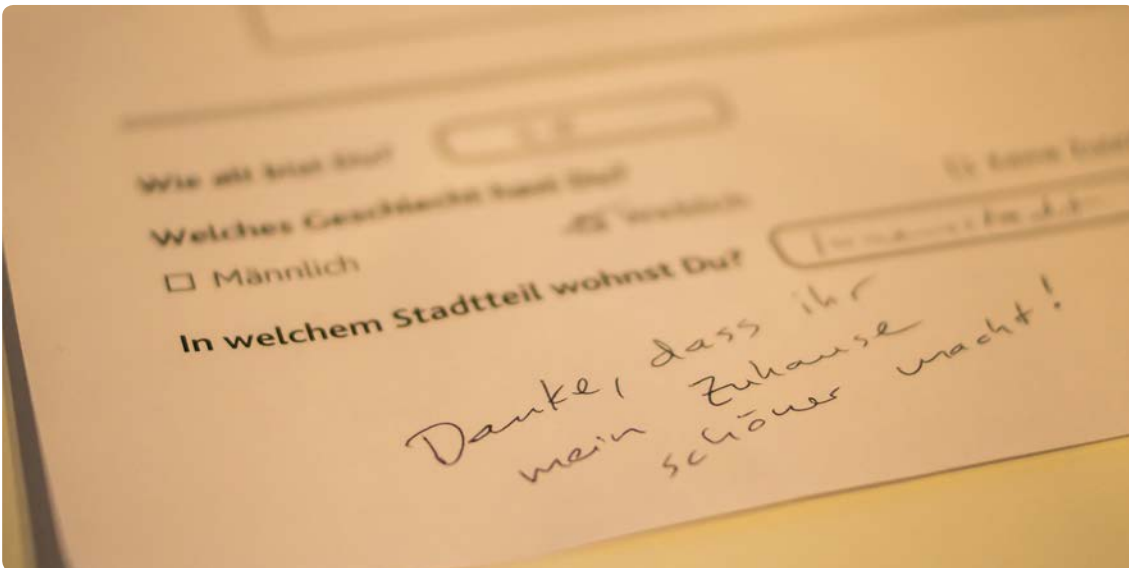 Wie alt bist Du?
Welches Geschlecht hast Du?
Männlich
Weiblich
In welchem Stadtteil wohnst Du?
Innenstadt
Danke, dass ihr
mein Zuhause
schöner macht!